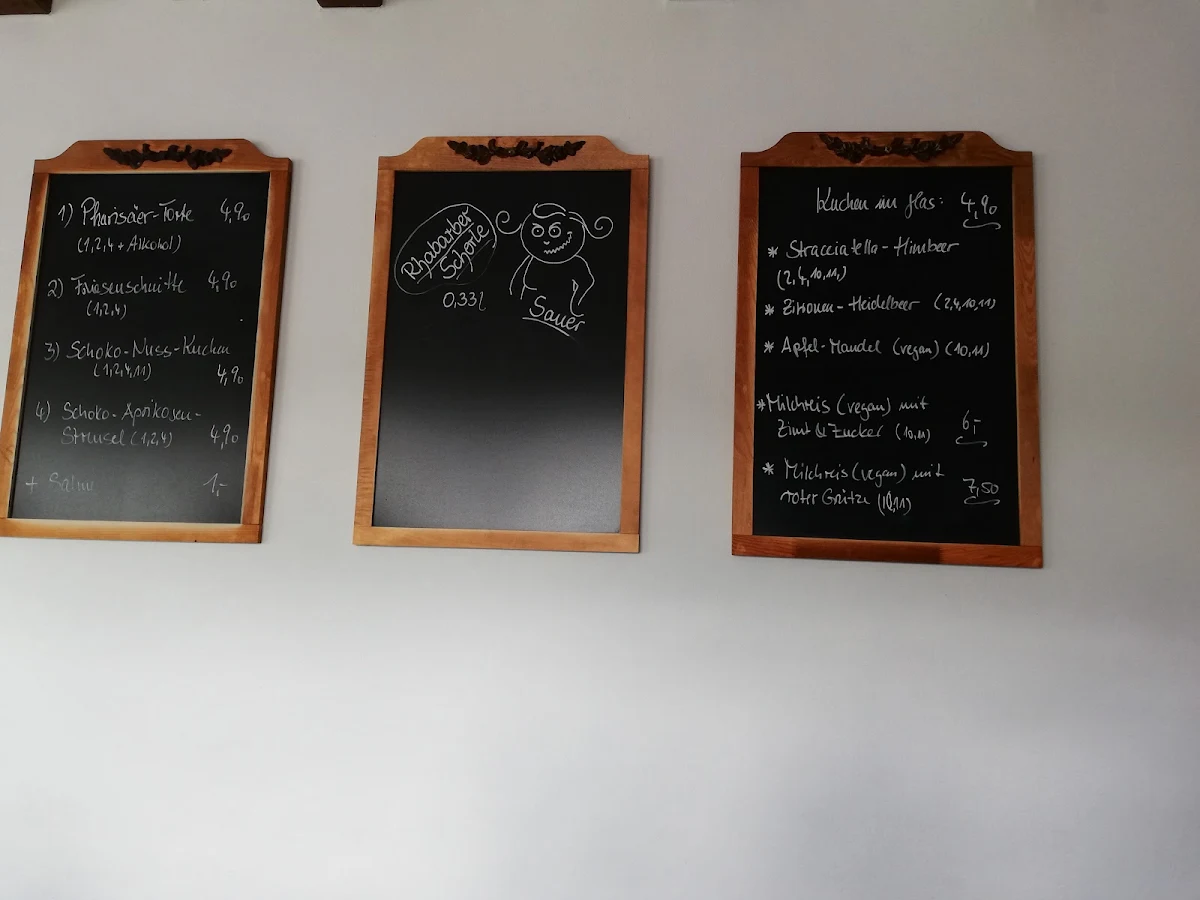 1) Pharisäer-Torte 4,90
(1,2,4 + Alkohol)
2) Friesenschnitte 4,90
(1,2,4)
3) Schoko-Nuss-Kuchen
(1,2,4,11) 4,90
4) Schoko-Aprikosen-
Streusel (1,2,4) 4,90
+ Sahne 1,-
Rhabarber
Schorle
0,33l
Sauer
Kuchen im Glas: 4,90
* Stracciatella-Himbeer
(2,4,10,11,)
* Zitronen-Heidelbeer (2,4,10,11)
* Apfel-Mandel (vegan) (10,11)
* Milchreis (vegan) mit
Zimt & Zucker (10,11) 6,-
* Milchreis (vegan) mit
roter Grütze (10,11) 7,50